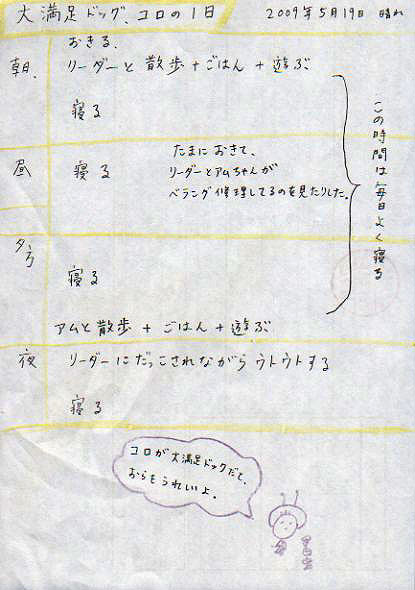 大満足ドッグ、コロの1日
2009年5月19日 晴れ
おきる、
朝、 リーダーと散歩+ごはん+遊ぶ
寝る
昼 寝る
たまにおきて、
リーダーとアムちゃんが
ベランダ修理してるのを見たりした。
この時間は毎日よく寝る
夕方
寝る
アムと散歩+ごはん+遊ぶ
夜 リーダーにだっこされながらウトウトする
寝る
コロが大満足ドックだて、
おらもうれしいよ。